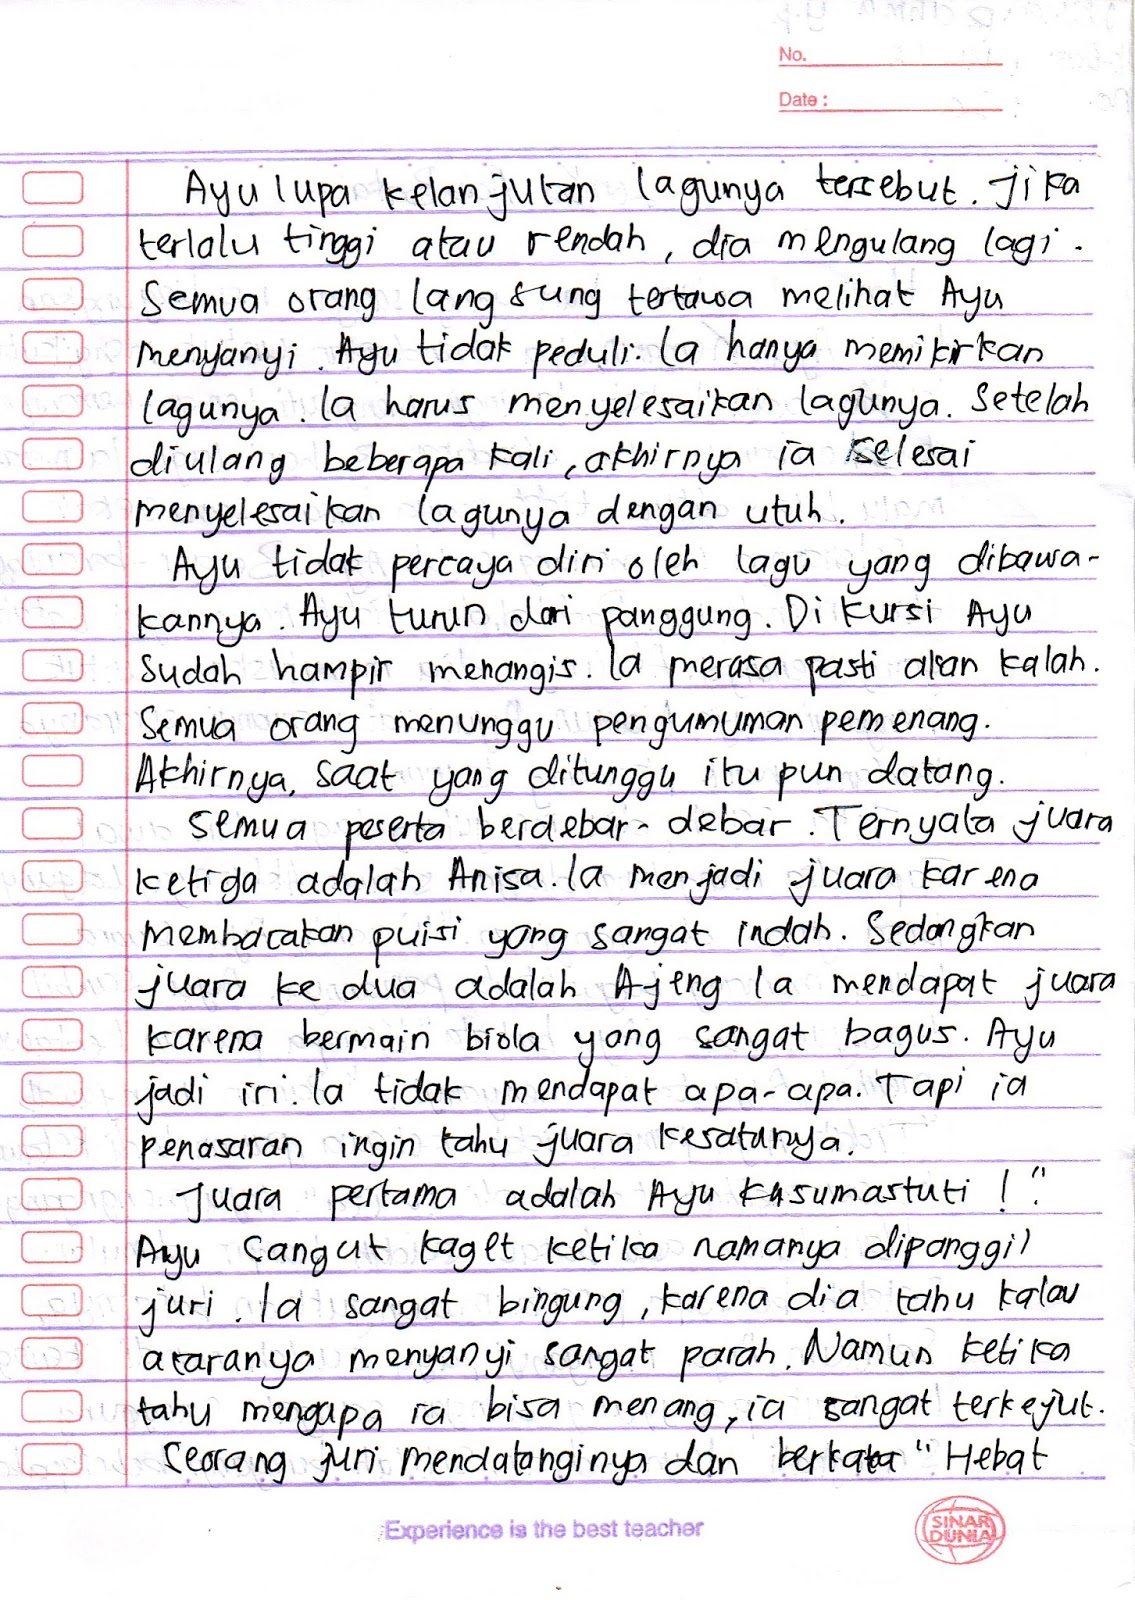 No.
Date :
Ayu lupa kelanjutan lagunya tersebut. Jika
terlalu tinggi atau rendah, dia mengulang lagi.
Semua orang langsung tertawa melihat Ayu
menyanyi. Ayu tidak peduli. Ia hanya memikirkan
lagunya. Ia harus menyelesaikan lagunya. Setelah
diulang beberapa kali, akhirnya ia selesai
menyelesaikan lagunya dengan utuh.
Ayu tidak percaya diri oleh lagu yang dibawa-
kannya. Ayu turun dari panggung. Di kursi Ayu
sudah hampir menangis. Ia merasa pasti akan kalah.
Semua orang menunggu pengumuman pemenang.
Akhirnya, saat yang ditunggu itu pun datang.
Semua peserta berdebar-debar. Ternyata juara
ketiga adalah Anisa. Ia menjadi juara karena
membacakan puisi yang sangat indah. Sedangkan
juara ke dua adalah Ajeng Ia mendapat juara
karena bermain biola yang sangat bagus. Ayu
jadi iri. Ia tidak mendapat apa-apa. Tapi ia
penasaran ingin tahu juara kesatunya.
Juara pertama adalah Ayu Kusumastuti !".
Ayu sangat kaget ketika namanya dipanggil
juri. Ia sangat bingung, karena dia tahu kalau
acaranya menyanyi sangat parah. Namun ketika
tahu mengapa ia bisa menang, ia sangat terkejut.
Seorang juri mendatanginya dan berkata "Hebat
Experience is the best teacher
SINAR
DUNIA